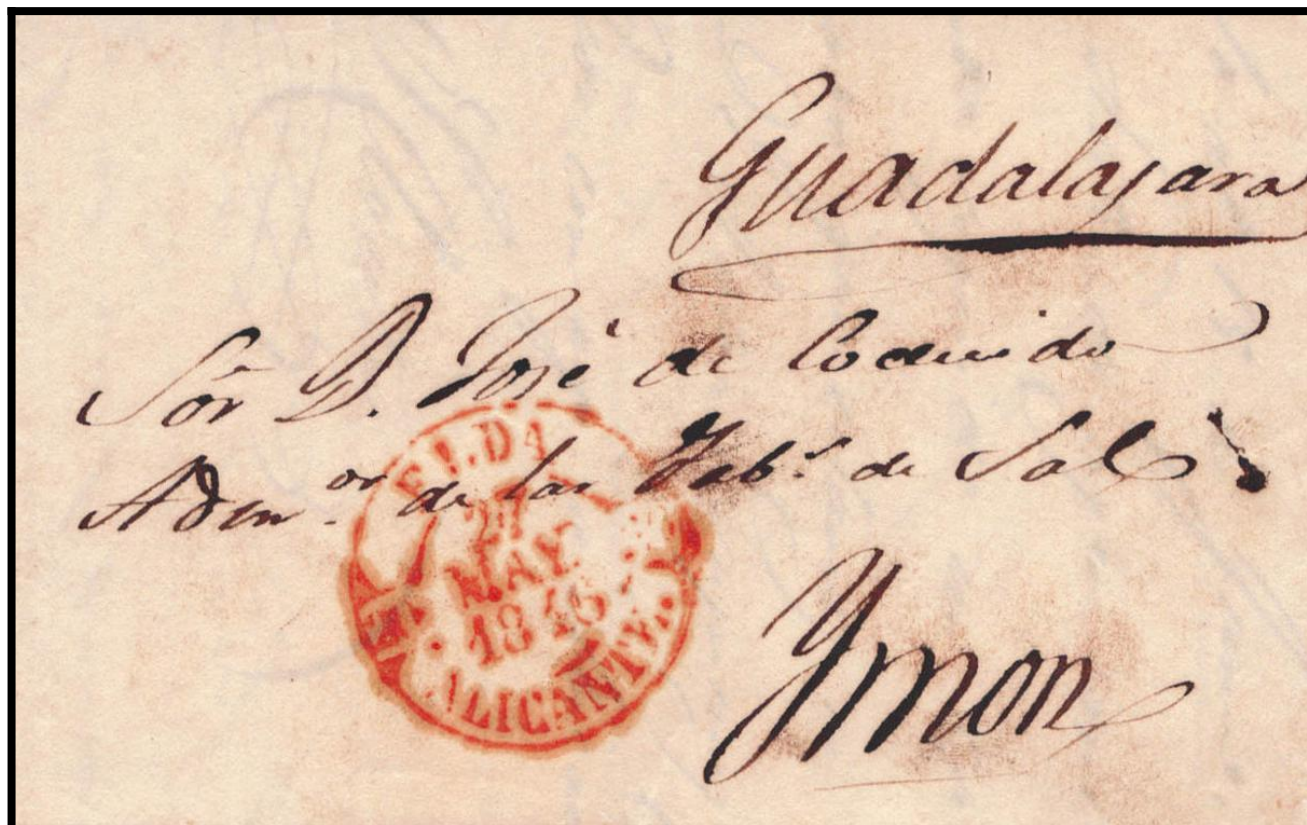 Guadalajara
Sor D. José de
Admor. de las Fabs. de Sal
ELDA
MAY
1846
ALICANTE.
Ymon